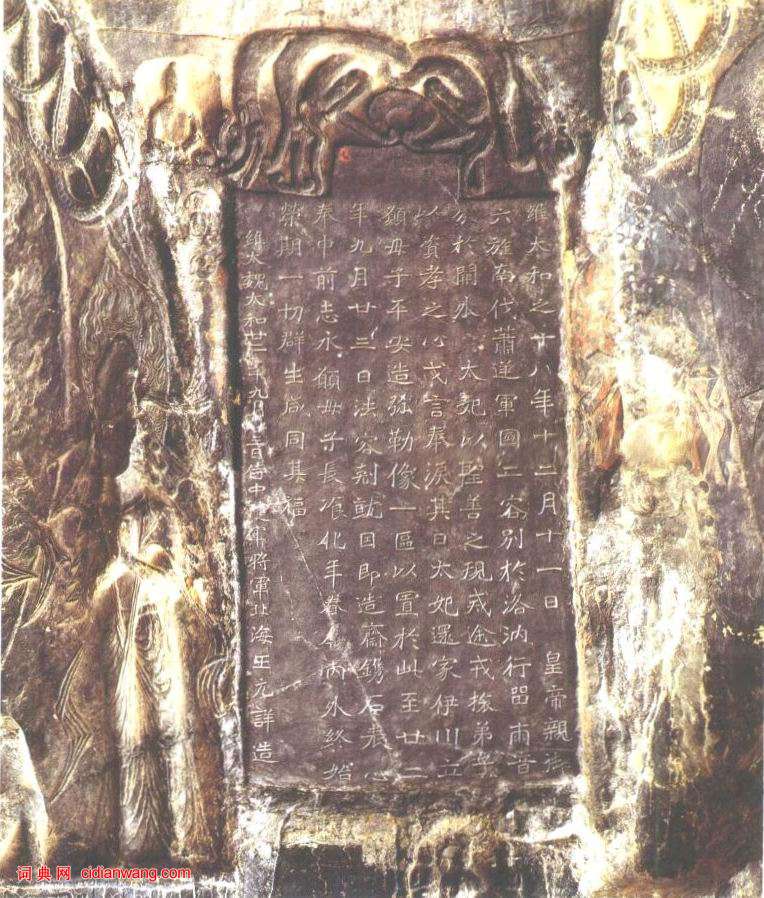 維太和之十八年十二月十一日皇帝親御
六旌南伐蕭逆軍國二容別於洛汭行留兩音
分於闕外太妃以聖善之規戒途戎旅弟子
以資孝之心戈言奉淚其日太妃還家伊川立
願母子平安造弥勒像一區以置於此至廿二
年九月廿三日法容剋就因即造齋鐫石表心
奉申前志永願母子長瓫化年眷屬內外終始
榮期一切群生咸同其福
維大魏太和廿二年九月廿三日侍中護軍將軍北海王元詳造
词典网 cidianwang.com